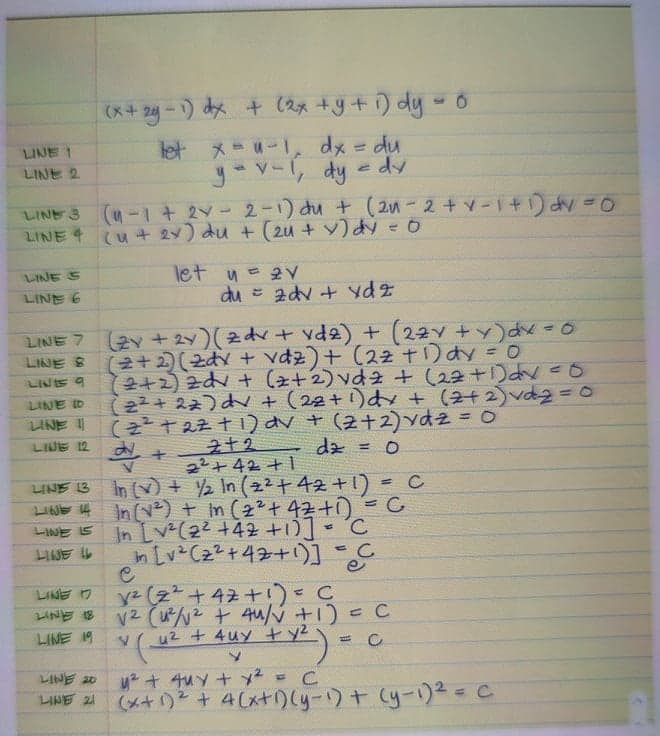 (x + 2y - 1) dx + (2x + y + 1) dy = 0
LINE 1 let x = u - 1, dx = du
LINE 2 y = v - 1, dy = dv
LINE 3 (u - 1 + 2v - 2 - 1) du + (2u - 2 + v - 1 + 1) dv = 0
LINE 4 (u + 2v) du + (2u + v) dv = 0
LINE 5 let u = zv
LINE 6 du = zdv + vdz
LINE 7 (zv + 2v)(zdv + vdz) + (2zv + v)dv = 0
LINE 8 (z + 2)(zdv + vdz) + (2z + 1) dv = 0
LINE 9 (z+2) zdv + (z+2) vdz + (2z+1)dv = 0
LINE 10 (z² + 2z) dv + (2z+1)dv + (z+2)vdz = 0
LINE 11 (z² + 2z + 1) dv + (z+2)vdz = 0
LINE 12 dv/v + (z+2)/(z² + 4z + 1) dz = 0
LINE 13 ln(v) + ½ ln(z² + 4z + 1) = C
LINE 14 ln(v²) + ln(z² + 4z + 1) = C
LINE 15 ln[v²(z² + 4z + 1)] = C
LINE 16 e^ln[v²(z² + 4z + 1)] = e^C
LINE 17 v²(z² + 4z + 1) = C
LINE 18 v²(u²/v² + 4u/v + 1) = C
LINE 19 v((u² + 4uv + v²)/v) = C
LINE 20 u² + 4uv + v² = C
LINE 21 (x+1)² + 4(x+1)(y-1) + (y-1)² = C